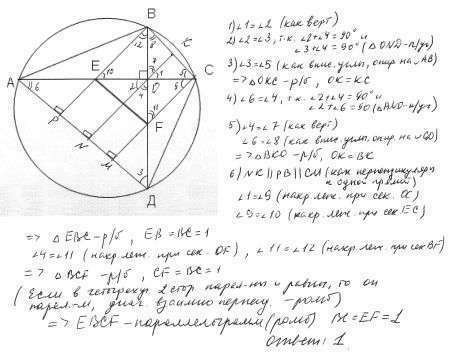 В
А
С
Д
Е
F
О
К
Р
N
М
1) ∠1=∠2 (как верт)
2) ∠2=∠3, т.к. ∠2+∠4=90° и
∠3+∠4=90° (△OND-п/уг)
3) ∠3=∠5 (как впис. углы, опир. на ∪АВ)
=> △ОКС-р/б, ОК=КС
4) ∠6=∠4, т.к. ∠2+∠4=90° и
∠2+∠6=90 (△ -п/уг)
5) ∠4=∠7 (как верт)
∠6=∠8 (как впис. углы, опир. на ∪СD)
=> △ВКО-р/б, ОК=ВК
6) NK||PB||CM (как перпендикуляры
к одной прямой)
∠1=∠9 (накр. леж. при сек. )
∠9=∠10 (накр. леж. при сек ЕС)
=> △ЕВС-р/б, ЕВ=ВС=1
∠4=∠11 (накр. леж. при сек. OF), ∠11=∠12 (накр. леж. при сек BF)
=> △BCF -р/б, CF=BC=1
(Если в четырехуг. 2 стор. парал-ны и равны, то он
парал-м, диаг взаимно перпенд. -ромб)
=> EBCF-параллелограмм (ромб) BC=EF=1
Ответ: 1.